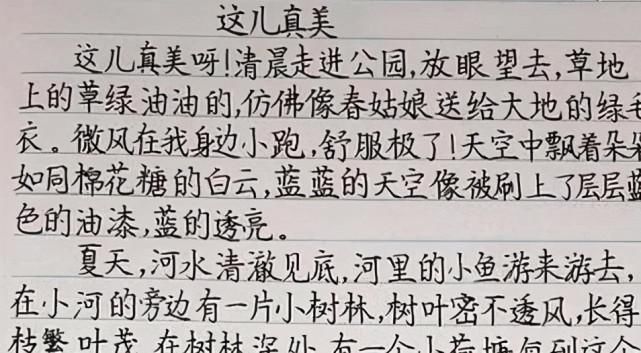 这儿真美
这儿真美呀!清晨走进公园,放眼望去,草地
上的草绿油油的,仿佛像春姑娘送给大地的绿毛
衣。微风在我身边小跑,舒服极了!天空中飘着朵
如同棉花糖的白云,蓝蓝的天空像被刷上了层层蓝
色的油漆,蓝的透亮。
夏天,河水清澈见底,河里的小鱼游来游去,
在小河的旁边有一片小树林,树叶密不透风,长得
枝繁叶茂,在树林深处,有一个小荷塘,每到这个